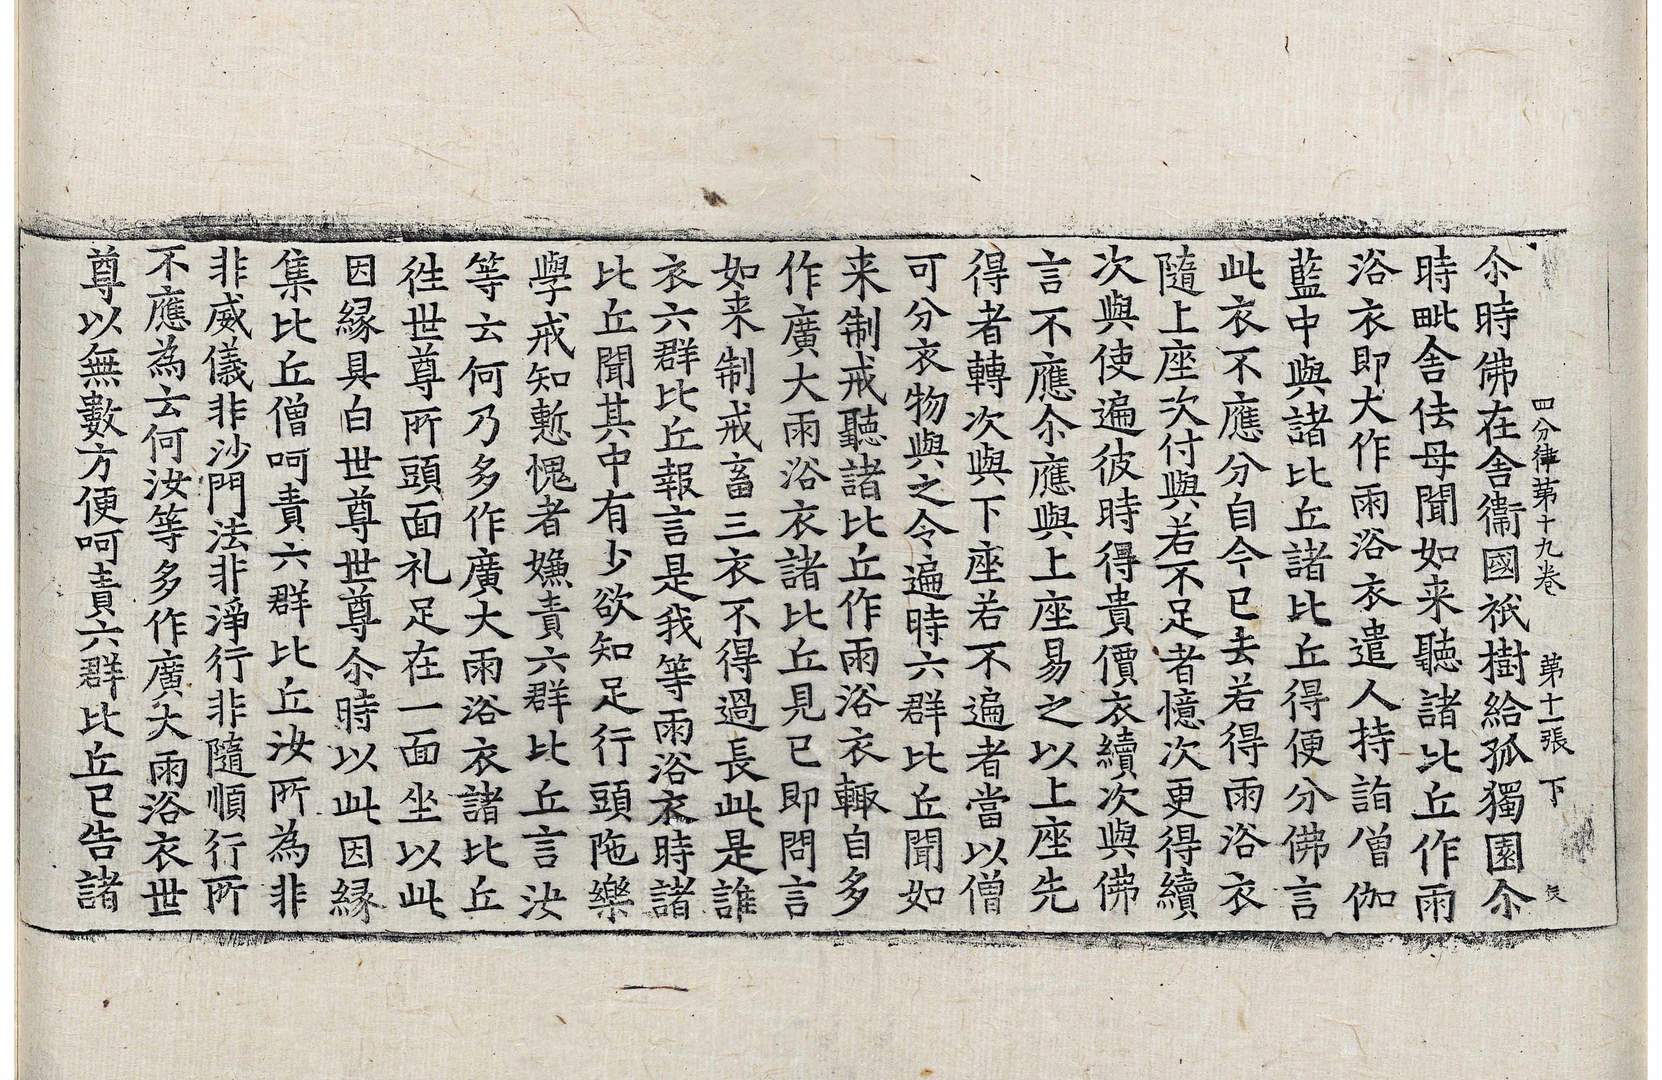 四分律第十九卷 第十一張 下
尒時佛在舍衞國祇樹給孤獨園尒
時毗舍佉母聞如来聽諸比丘作雨
浴衣即大作雨浴衣遣人持詣僧伽
藍中與諸比丘諸比丘得便分佛言
此衣不應分自今已去若得雨浴衣
隨上座次付與若不足者憶次更得續
次與使遍彼時得貴價衣續次與佛
言不應尒應與上座易之以上座先
得者轉次與下座若不遍者當以僧
可分衣物與之令遍時六群比丘聞如
来制戒聽諸比丘作雨浴衣輙自多
作廣大雨浴衣諸比丘見已即問言
如来制戒畜三衣不得過長此是誰
衣六群比丘報言是我等雨浴衣時諸
比丘聞其中有少欲知足行頭陁樂
學戒知慙愧者嫌責六群比丘言汝
等云何乃多作廣大雨浴衣諸比丘
徃世尊所頭面礼足在一面坐以此
因縁具白世尊世尊尒時以此因縁
集比丘僧呵責六群比丘汝所為非
非威儀非沙門法非淨行非隨順行所
不應為云何汝等多作廣大雨浴衣世
尊以無數方便呵責六群比丘已告諸